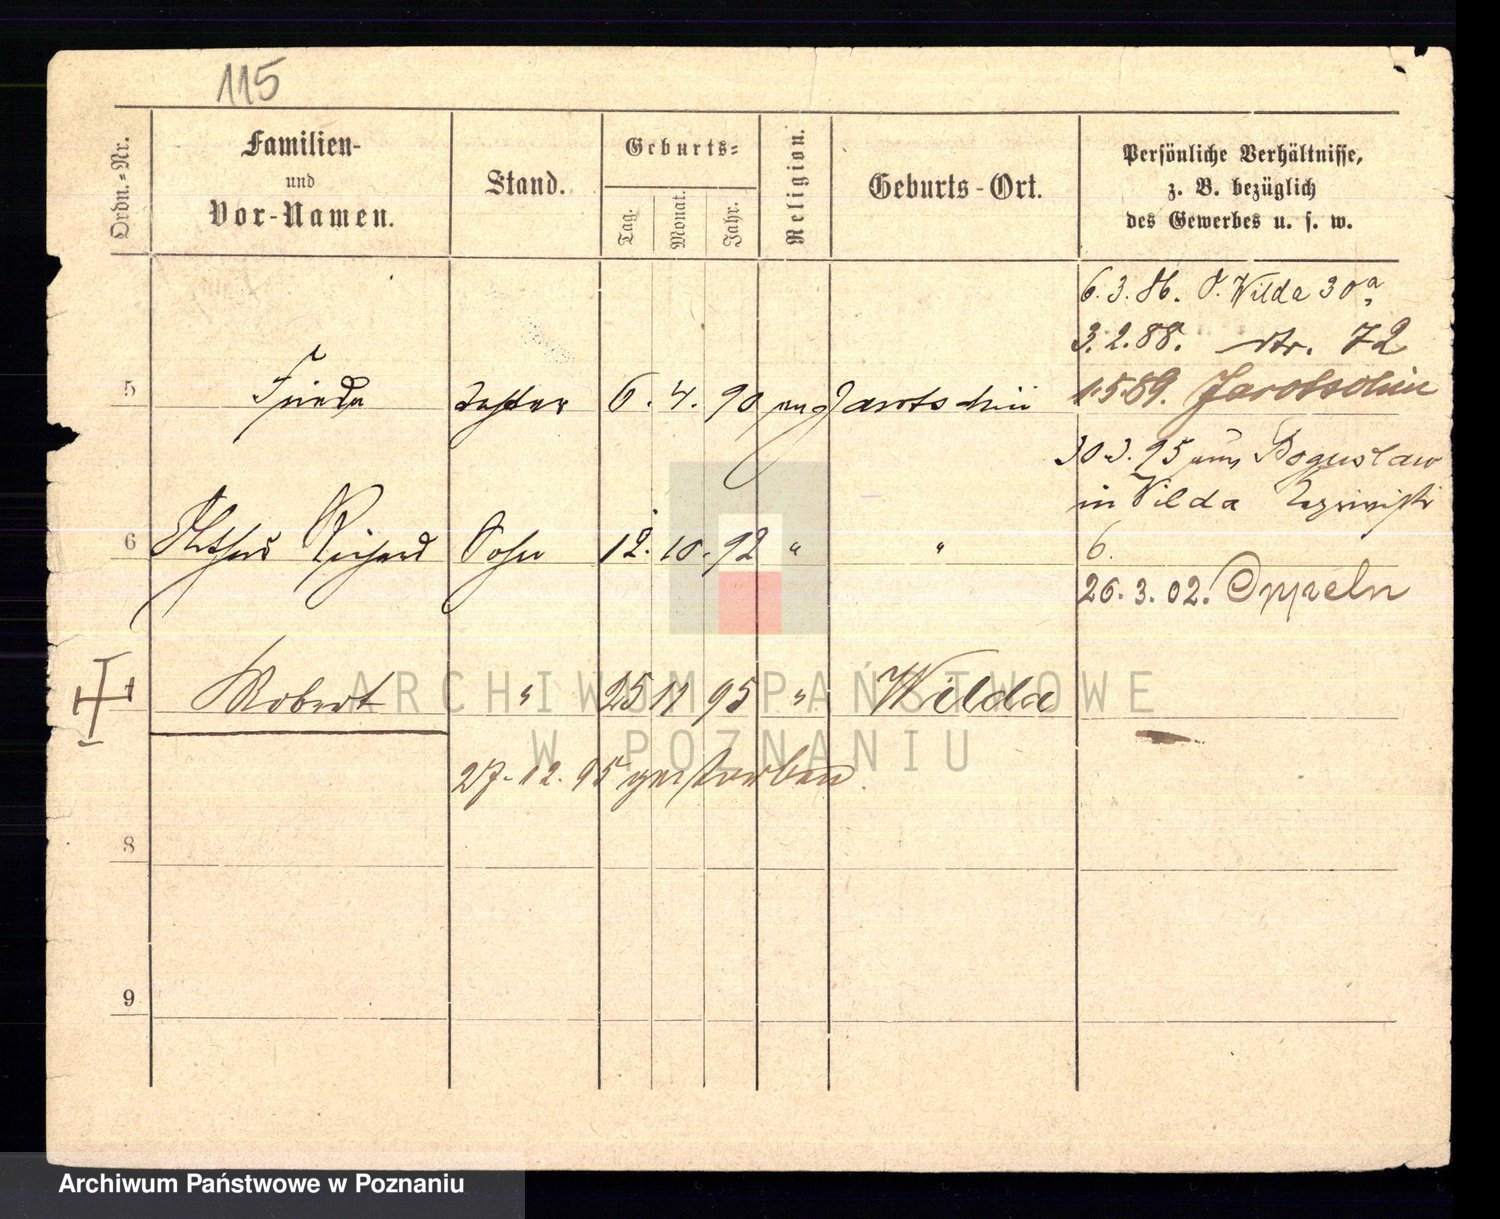 115
Ordn.-Nr.
Familien-
und
Vor-Namen.
Stand.
Geburts-
Tag.
Monat.
Jahr.
Religion.
Geburts-Ort.
Persönliche Verhältnisse,
z. B. bezüglich
des Gewerbes u. s. w.
6.3.86. O. Wilda 30a
3.2.88. dto. 72
5 Frieda Tochter 6. 4. 90 ev Jarotschin
1.5.89. Jarotschin
30.3.95 aus Boguslaw
in Wilda
6 Arthur Richard Sohn 12. 10. 92 " "
6.
26.3.02. Oppeln
Robert " 25 11 95 " Wilda
27.12.95 gestorben.
8
9
ARCHIWUM PAŃSTWOWE
W POZNANIU
Archiwum Państwowe w Poznaniu